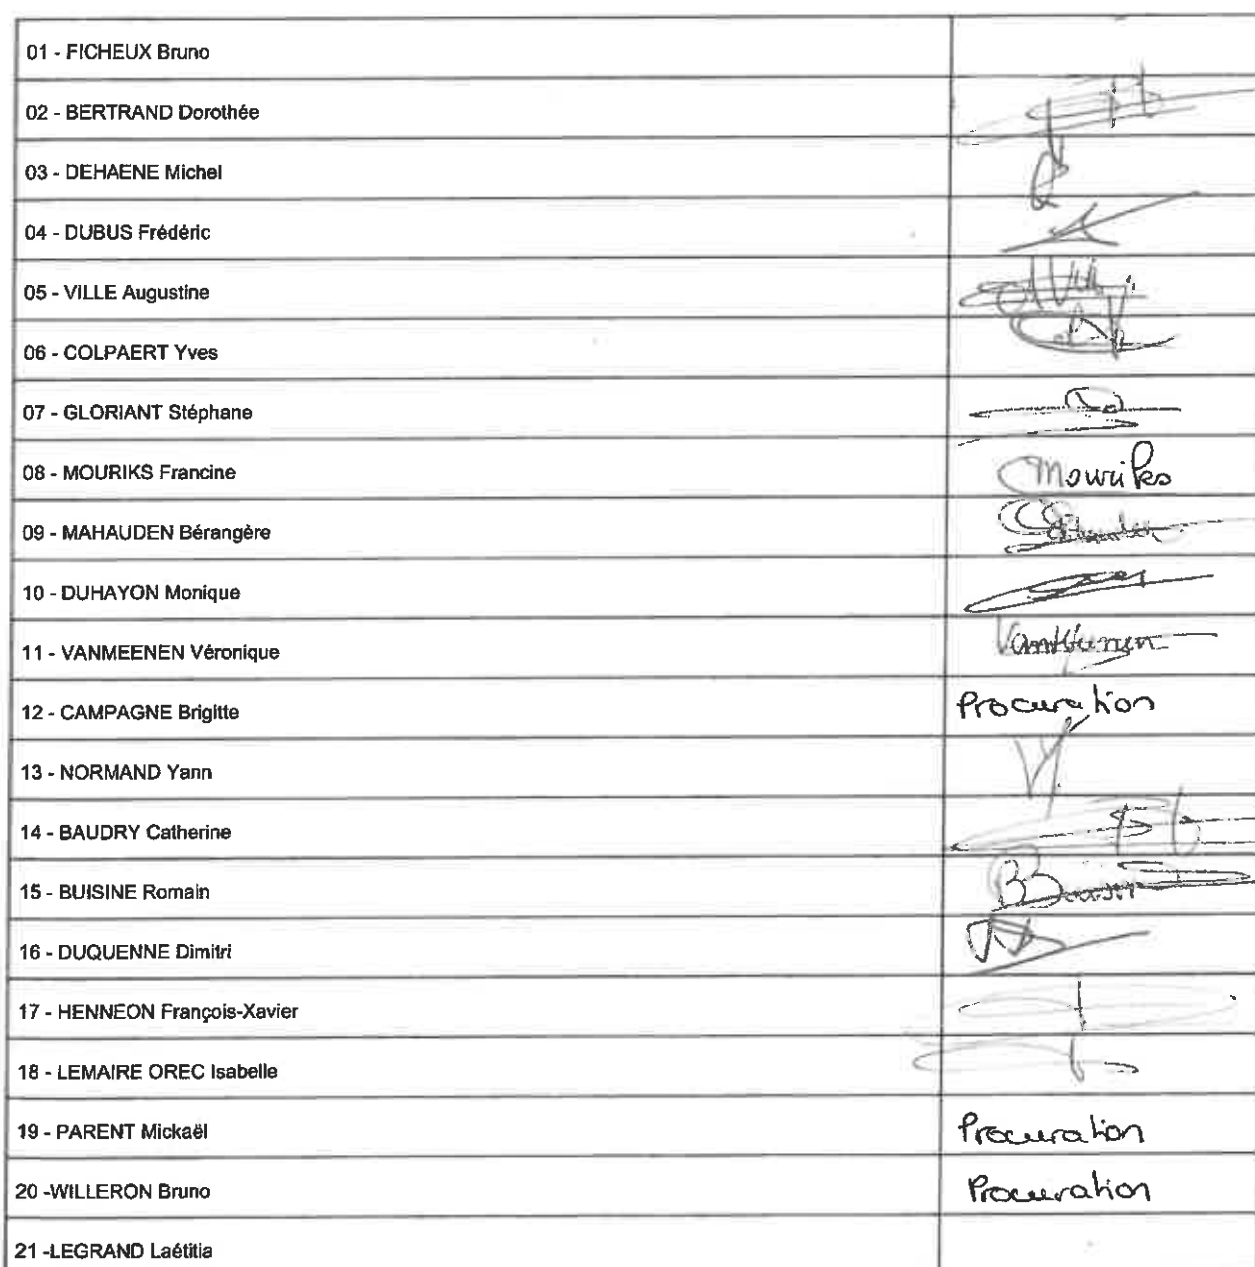 01 - FICHEUX Bruno
02 - BERTRAND Dorothée
03 - DEHAENE Michel
04 - DUBUS Frédéric
05 - VILLE Augustine
06 - COLPAERT Yves
07 - GLORIANT Stéphane
08 - MOURIKS Francine Mouriks
09 - MAHAUDEN Bérangère
10 - DUHAYON Monique
11 - VANMEENEN Véronique
12 - CAMPAGNE Brigitte Procuration
13 - NORMAND Yann
14 - BAUDRY Catherine
15 - BUISINE Romain
16 - DUQUENNE Dimitri
17 - HENNEON François-Xavier
18 - LEMAIRE OREC Isabelle
19 - PARENT Mickaël Procuration
20 -WILLERON Bruno Procuration
21 -LEGRAND Laétitia